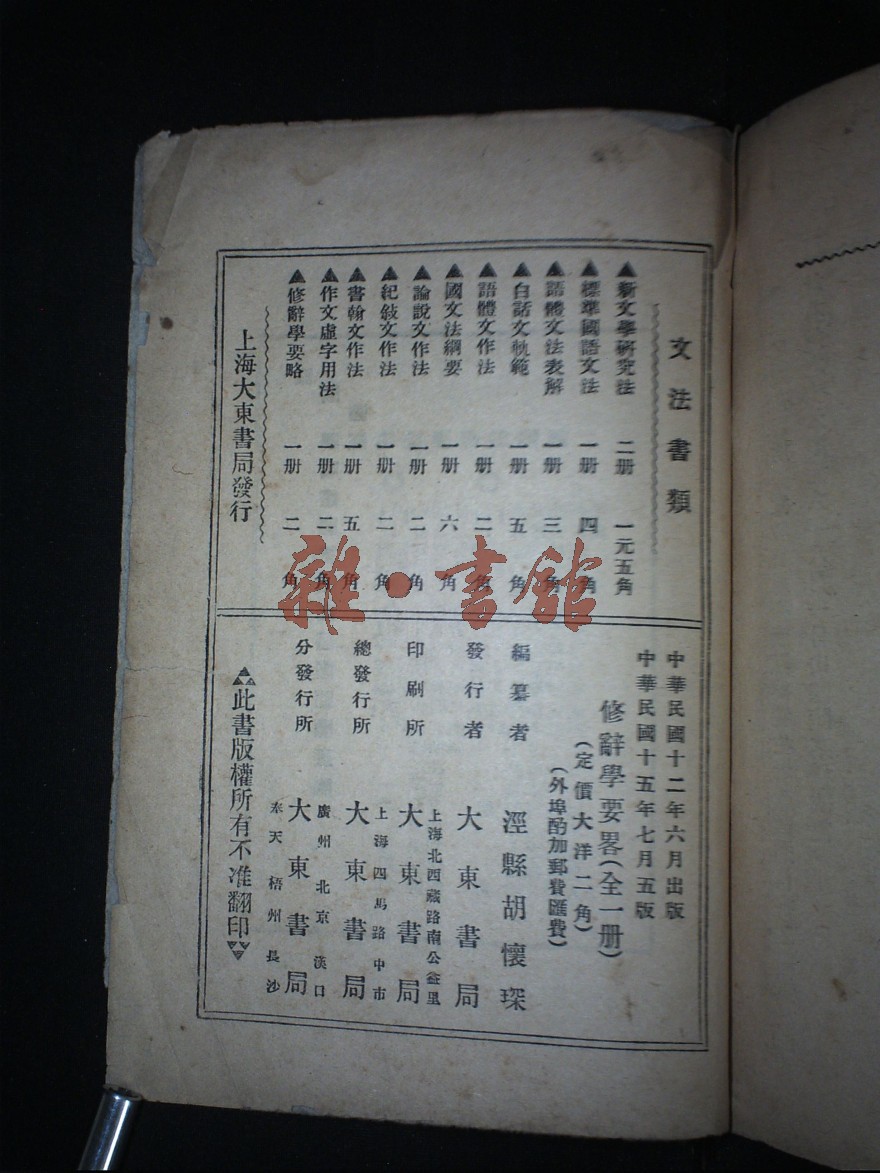 文法書類
▲新文學研究法 二册 一元五角
▲標準國語文法 一册 四角
▲語體文法表解 一册 三角
▲白話文軌範 一册 五角
▲語體文作法 一册 二角
▲國文法綱要 一册 六角
▲論說文作法 一册 二角
▲紀敍文作法 一册 二角
▲書翰文作法 一册 五角
▲作文虛字用法 一册 二角
▲修辭學要略 一册 二角
上海大東書局發行
中華民國十二年六月出版
中華民國十五年七月五版
修辭學要畧(全一册)
(定價大洋二角)
(外埠酌加郵費匯費)
編纂者 涇縣胡懷琛
發行者 大東書局
上海北西藏路南公益里
印刷所 大東書局
上海四馬路中市
總發行所 大東書局
廣州北京漢口
分發行所 大東書局
奉天梧州長沙
此書版權所有不准翻印
雜·書館